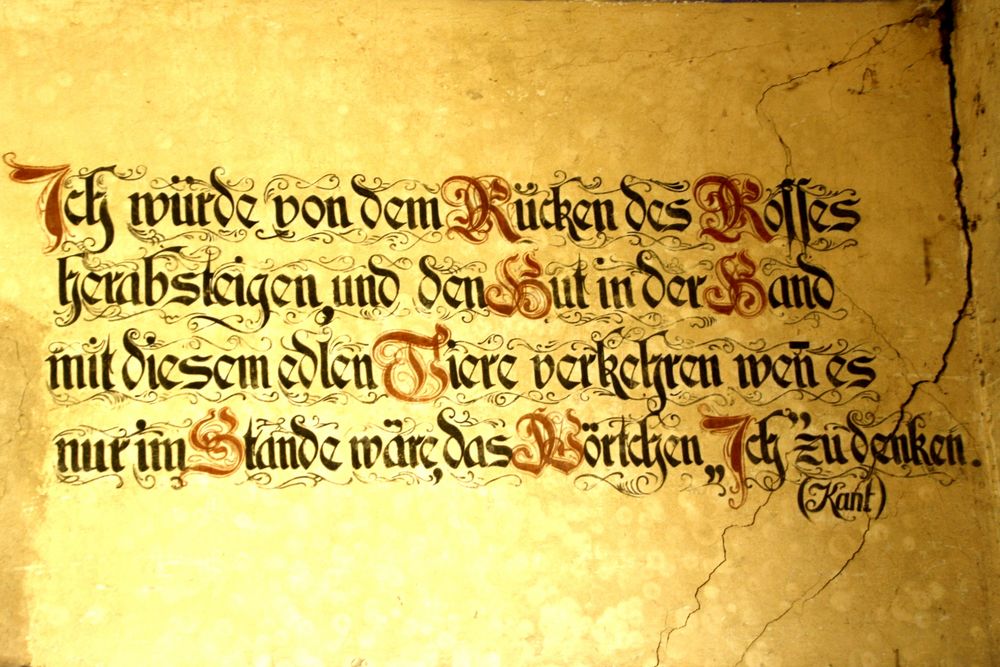 Ich würde von dem Rücken des Rosses
herabsteigen, und den Hut in der Hand
mit diesem edlen Tiere verkehren wen̄ es
nur im Stande wäre, das Wörtchen „Ich” zu denken.
(Kant)